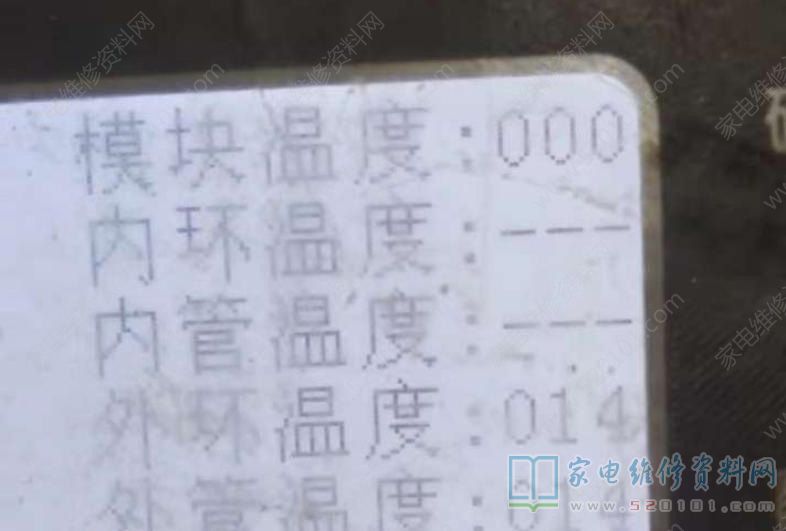 模块温度:000
内环温度:---
内管温度:---
外环温度:014
外管温度:01
家电维修资料网
www.520101.com